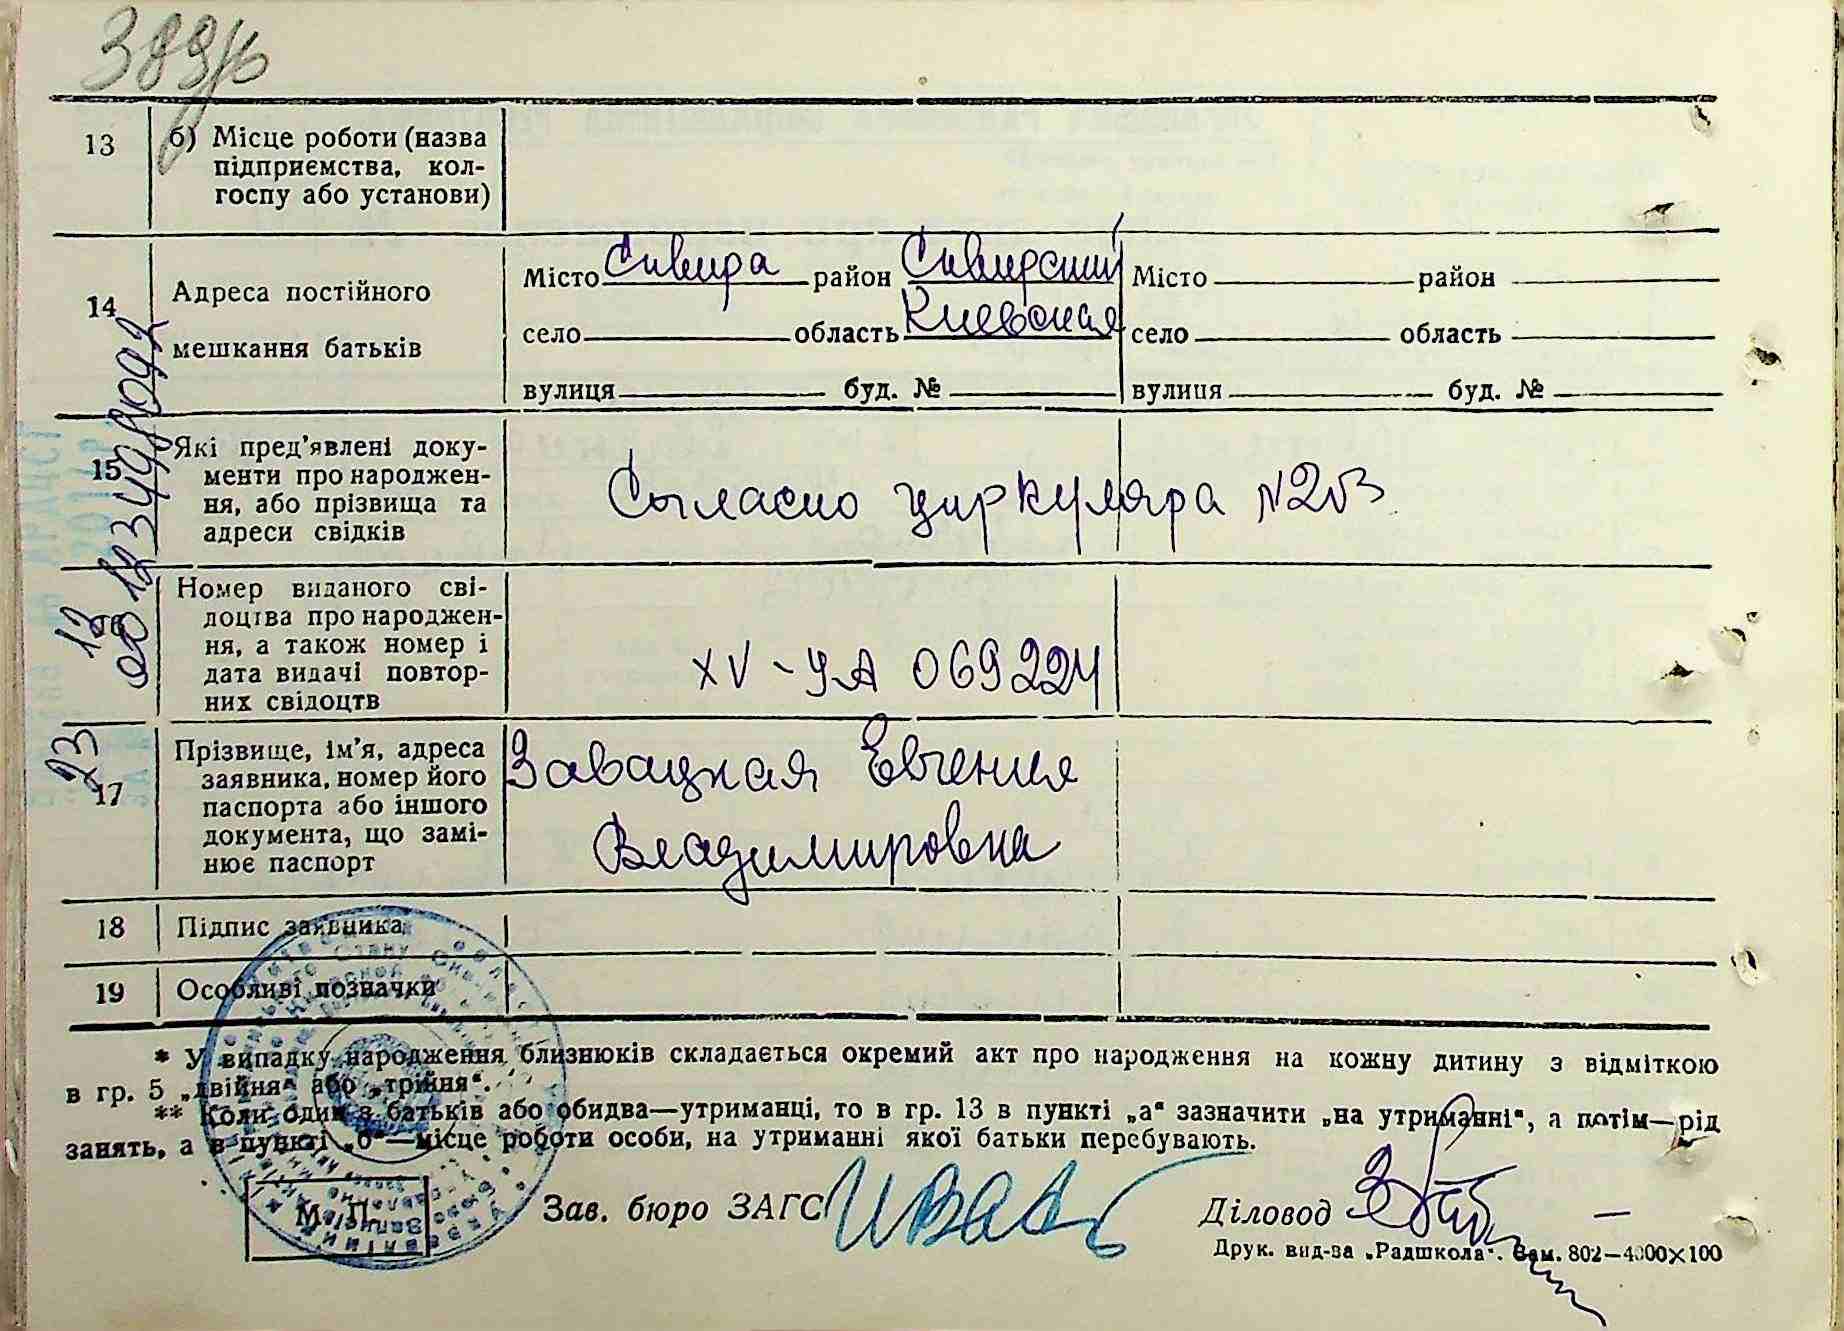 13
б) Місце роботи (назва
підприємства, кол-
госпу або установи)
14
Адреса постійного
мешкання батьків
Місто Сквира район Сквирский
село область Киевская
вулиця буд. №
Місто район
село область
вулиця буд. №
15
Які пред'явлені доку-
менти про народжен-
ня, або прізвища та
адреси свідків
Согласно циркуляра №203
Номер виданого сві-
доцтва про народжен-
ня, а також номер і
дата видачі повтор-
них свідоцтв
XV-УА 069224
17
Прізвище, ім'я, адреса
заявника, номер його
паспорта або іншого
документа, що замі-
нює паспорт
Завацкая Евгения
Владимировна
18
Підпис заявника
19
Особливі позначки
* У випадку народження близнюків складається окремий акт про народження на кожну дитину з відміткою
в гр. 5 „двійня“ або „трійня“.
** Коли один з батьків або обидва—утриманці, то в гр. 13 в пункті „а“ зазначити „на утриманні“, а потім—рід
занять, а в пункті „б“—місце роботи особи, на утриманні якої батьки перебувають.
М. П.
Зав. бюро ЗАГС
Діловод
Друк. вид-ва „Радшкола“. Зам. 802—4000×100